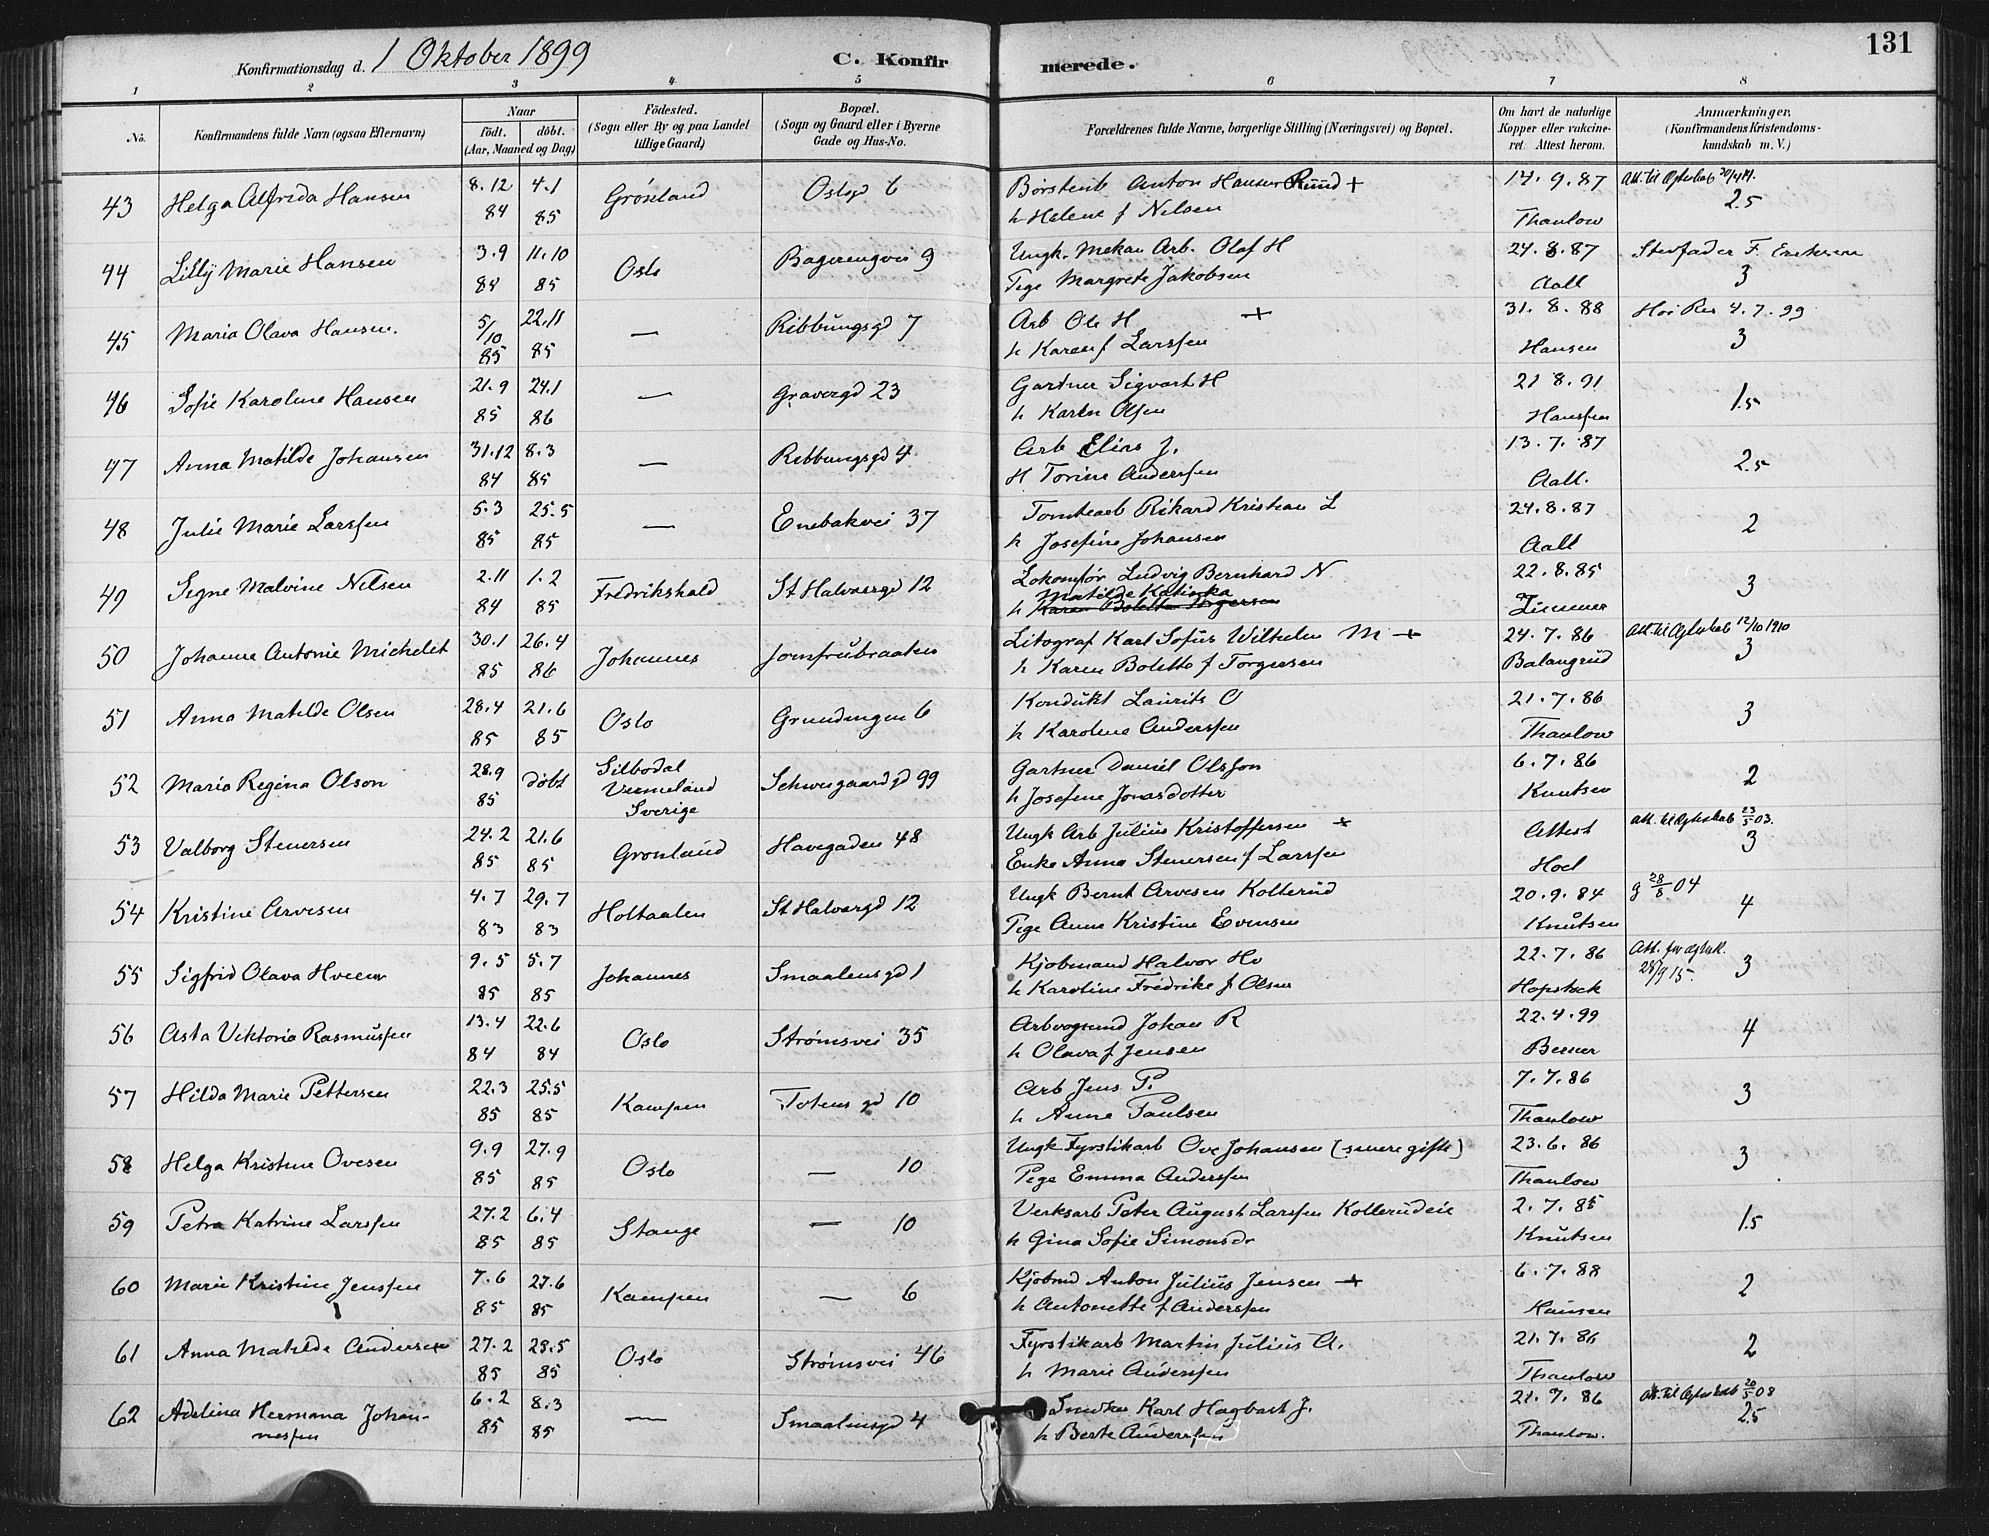 Konfirmationsdag d. 1 Oktober 1899 C. Konfirmerede. 131
1 2 3 4 5 6 7 8
No. Konfirmandens fulde Navn (ogsaa Efternavn) Naar født. døbt. (Aar, Maaned og Dag) Fødested. (Sogn eller By og paa Landet tillige Gaard) Bopæl. (Sogn og Gaard eller i Byerne Gade og Hus-No. Forældrenes fulde Navne, borgerlige Stilling (Næringsvei) og Bopæl. Om havt de naturlige Kopper eller vakcineret. Attest herom. Anmærkninger. (Konfirmandens Kristendomskundskab m. V.)
43 Helga Alfrida Hansen 8.12 84 4.1 85 Grønland Oslogd 6 Børstenb Anton Hansen Ruud +
h Helene f Nilsen 14.9.87 Thaulow 2.5
44 Lilly Marie Hansen 3.9 84 11.10 85 Oslo 9 Ungk. Mekan Arb. Olaf H
Pige Margrete Jakobsen 24.8.87 Aall Stedfader F. Eriksen 3
45 Maria Olava Hansen. 5/10 85 22.11 85 — Ribbungsgd 7 Arb Ole H +
h Karen f Larssen 31.8.88 Hansen 4.7.99 3
46 Sofie Karoline Hansen 21.9 85 24.1 86 — Gravergd 23 Gartner Sigvart H
h Karen Olsen 21 8.91 Hanssen 1.5
47 Anna Matilde Johansen 31.12 84 8.3 85 — Ribbungsgd 4. Arb Elias J.
H Torine Anderssen 13.7.87 Aall. 2.5
48 Julie Marie Larssen 5.3 85 25.5 85 — Enebakvei 37 Tomtearb Rikard Kristian L
h Josefine Johansen 24.8.87 Aall 2
49 Signe Malvine Nilsen 2.11 84 1.2 85 Fredrikshald St Halvarsgd 12 Lokomfør Ludvig Bernhard N
Matilde Katinka
h Karen Bolette Torgersen 22.8.85 Zimmer 3
50 Johanne Antonie Michelet 30.1 85 26.4 86 Johannes Jomfrubraaten Litograf Karl Sofus Wilhelm M +
h Karen Bolette f Torgersen 24.7.86 Balangrud Att. til Ægteskab 12/10 1910 3
51 Anna Matilde Olsen 28.4 85 21.6 85 Oslo Grundingen 6 Kondukt Laurits O
h Karoline Anderssen 21.7.86 Thaulow 3
52 Maria Regina Olson 28.9 85 døbt Silbodal Vermeland Sverige Schweigaardgd 99 Gartner Daniel Olsson
h Josefine Jonasdotter 6.7.86 Knutsen 2
53 Valborg Stenersen 24.2 85 21.6 85 Grønland Havegaden 48 Ungk Arb Julius Kristoffersen +
Enke Anna Stenersen f Larssen Attest Hoel Att. til Ægteskab 23/5 03. 3
54 Kristine Arvesen 4.7 83 29.7 83 Holtaalen St Halvargd 12 Ungk Bernt Arvesen Kolterud
Pige Anne Kristine Evensen 20.9.84 Knutsen g 28/8 04 4
55 Sigfrid Olava Hveem 9.5 85 5.7 85 Johannes Smaalensgd 1 Kjøbmand Halvor Hv
h Karoline Fredrike f Olsen 22.7.86 Hopstock Att. for ægtesk. 28/9 15. 3
56 Asta Viktoria Rasmussen 13.4 84 22.6 84 Oslo Strømsvei 35 Johan R
h Olava f Jensen 22.4.99 Berner 4
57 Hilda Marie Pettersen 22.3 85 25.5 85 Kampen Totensgd 10 Arb Jens P.
h Anne Paulsen 7.7.86 Thaulow 3
58 Helga Kristine Ovesen 9.9 85 27.9 85 Oslo — 10 Ungk Fyrstikarb Ove Johansen (senere gifte)
Pige Emma Anderssen 23.6.86 Thaulow 3
59 Petra Katrine Larssen 27.2 85 6.4 85 Stange — 10 Verksarb Peter August Larssen Kollerudeie
h Gina Sofie Simonsdr 2.7.85 Knutsen 1.5
60 Marie Kristine Jenssen 7.6 85 27.6 85 Kampen — 6 Kjøbmd Anton Julius Jensen +
h Antonette f Anderssen 6.7.88 Hansen 2
61 Anna Matilde Andersen 27.2 85 28.5 85 Oslo Strømsvei 46 Fyrstikarb Martin Julius A.
h Marie Anderssen 21.7.86 Thaulow 2
62 Adelina Hermana Johannessen 6.2 85 8.3 85 — Smaalensgd 4 Snedker Karl Hagbart J.
h Berte Anderssen 21.7.86 Thaulow. Att. til Ægteskab 20/5 08 2.5